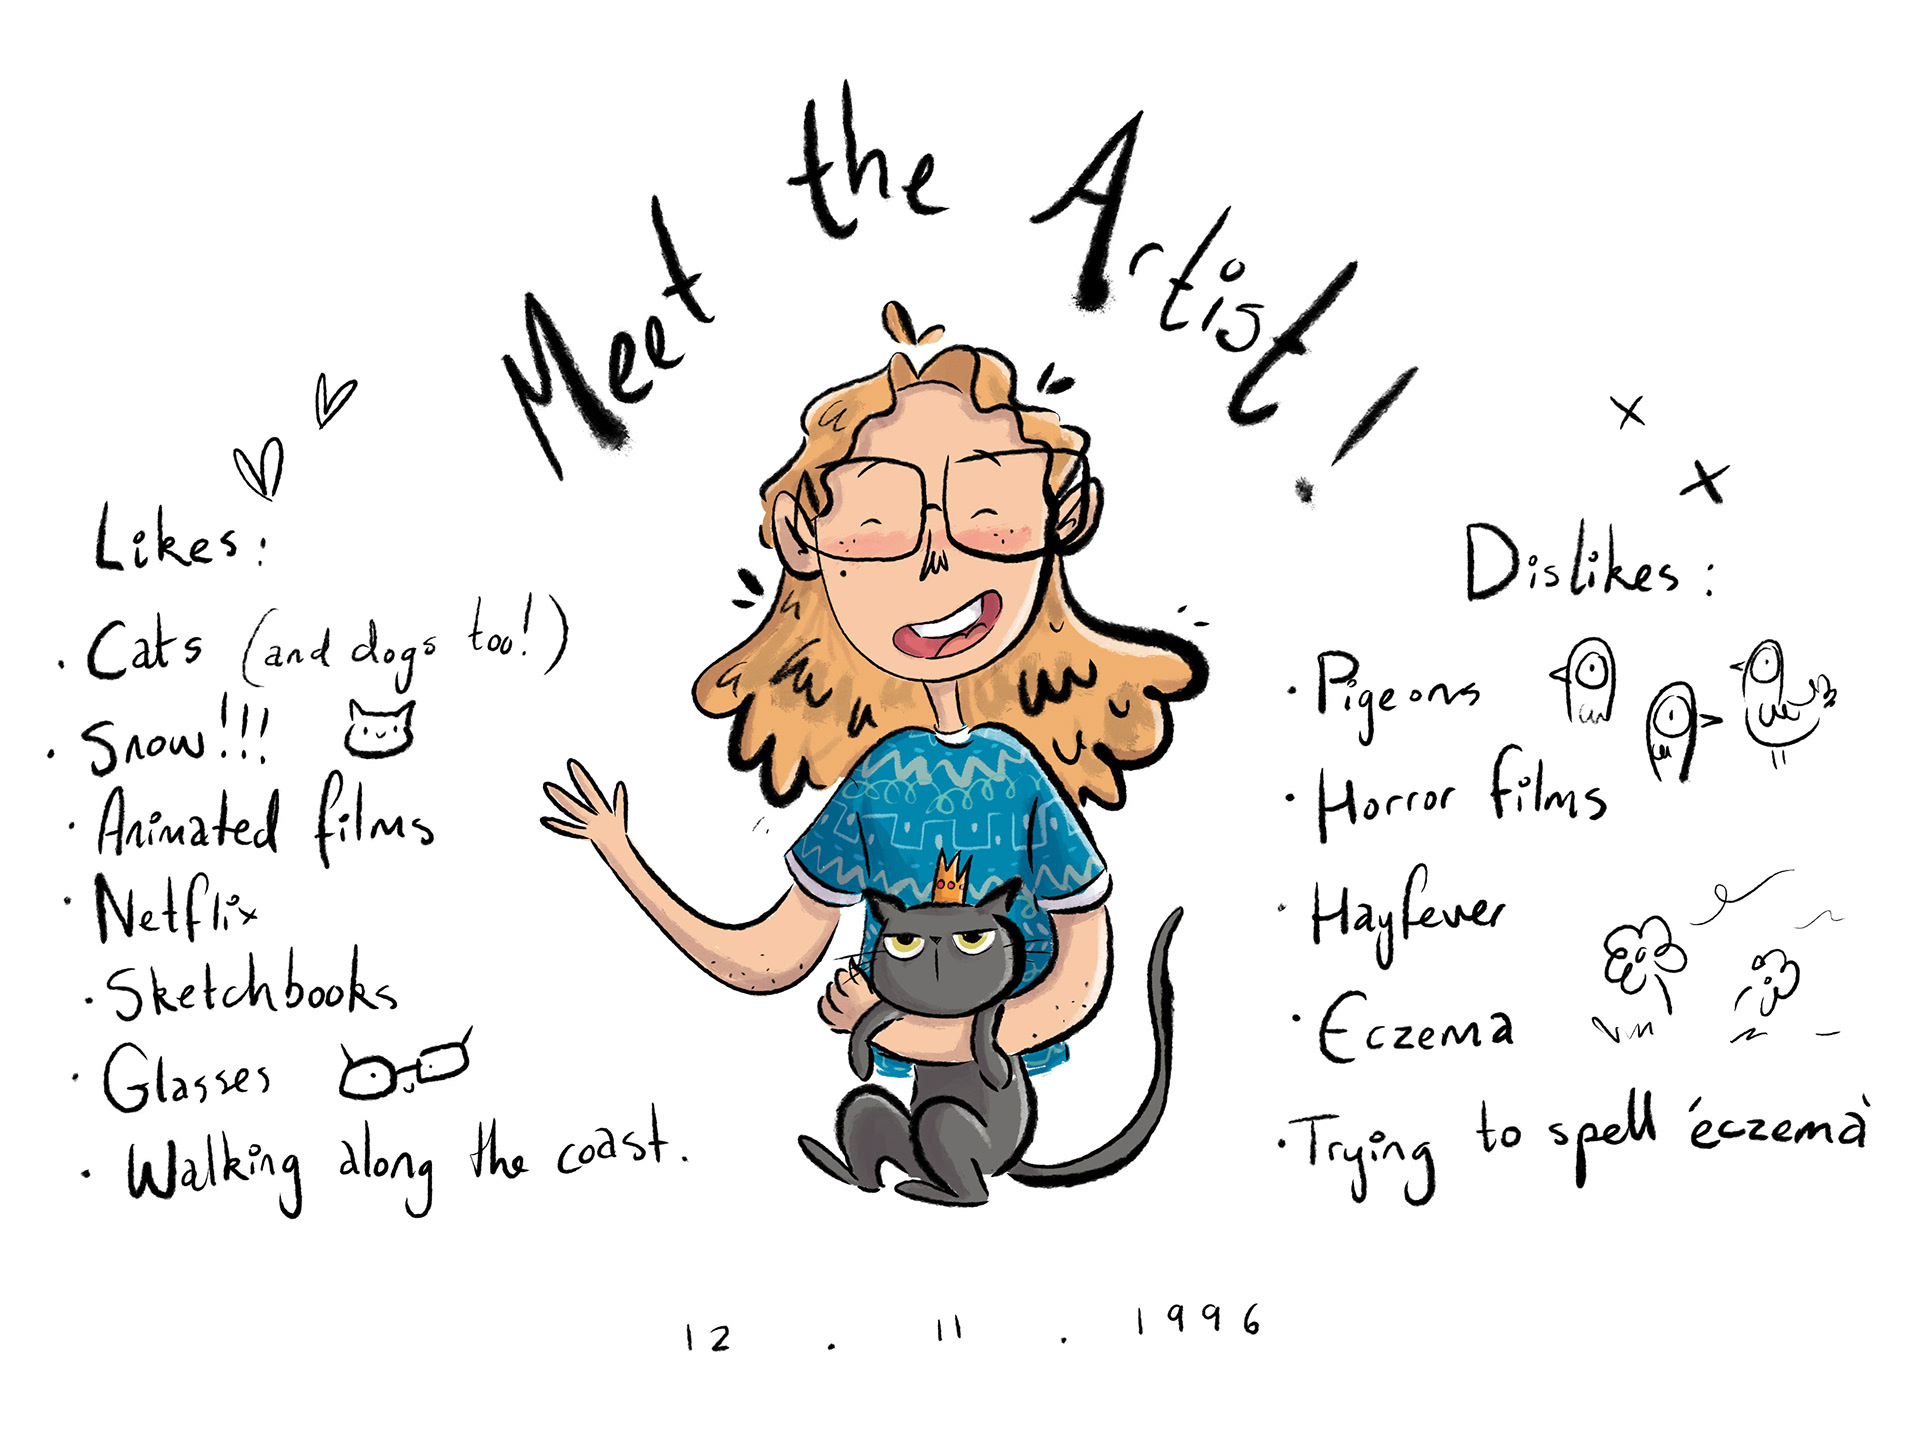 Meet the Artist!
Likes:
· Cats (and dogs too!)
· Snow!!!
· Animated films
· Netflix
· Sketchbooks
· Glasses
· Walking along the coast.
Dislikes:
· Pigeons
· Horror films
· Hayfever
· Eczema
· Trying to spell 'eczema'
12 . 11 . 1996